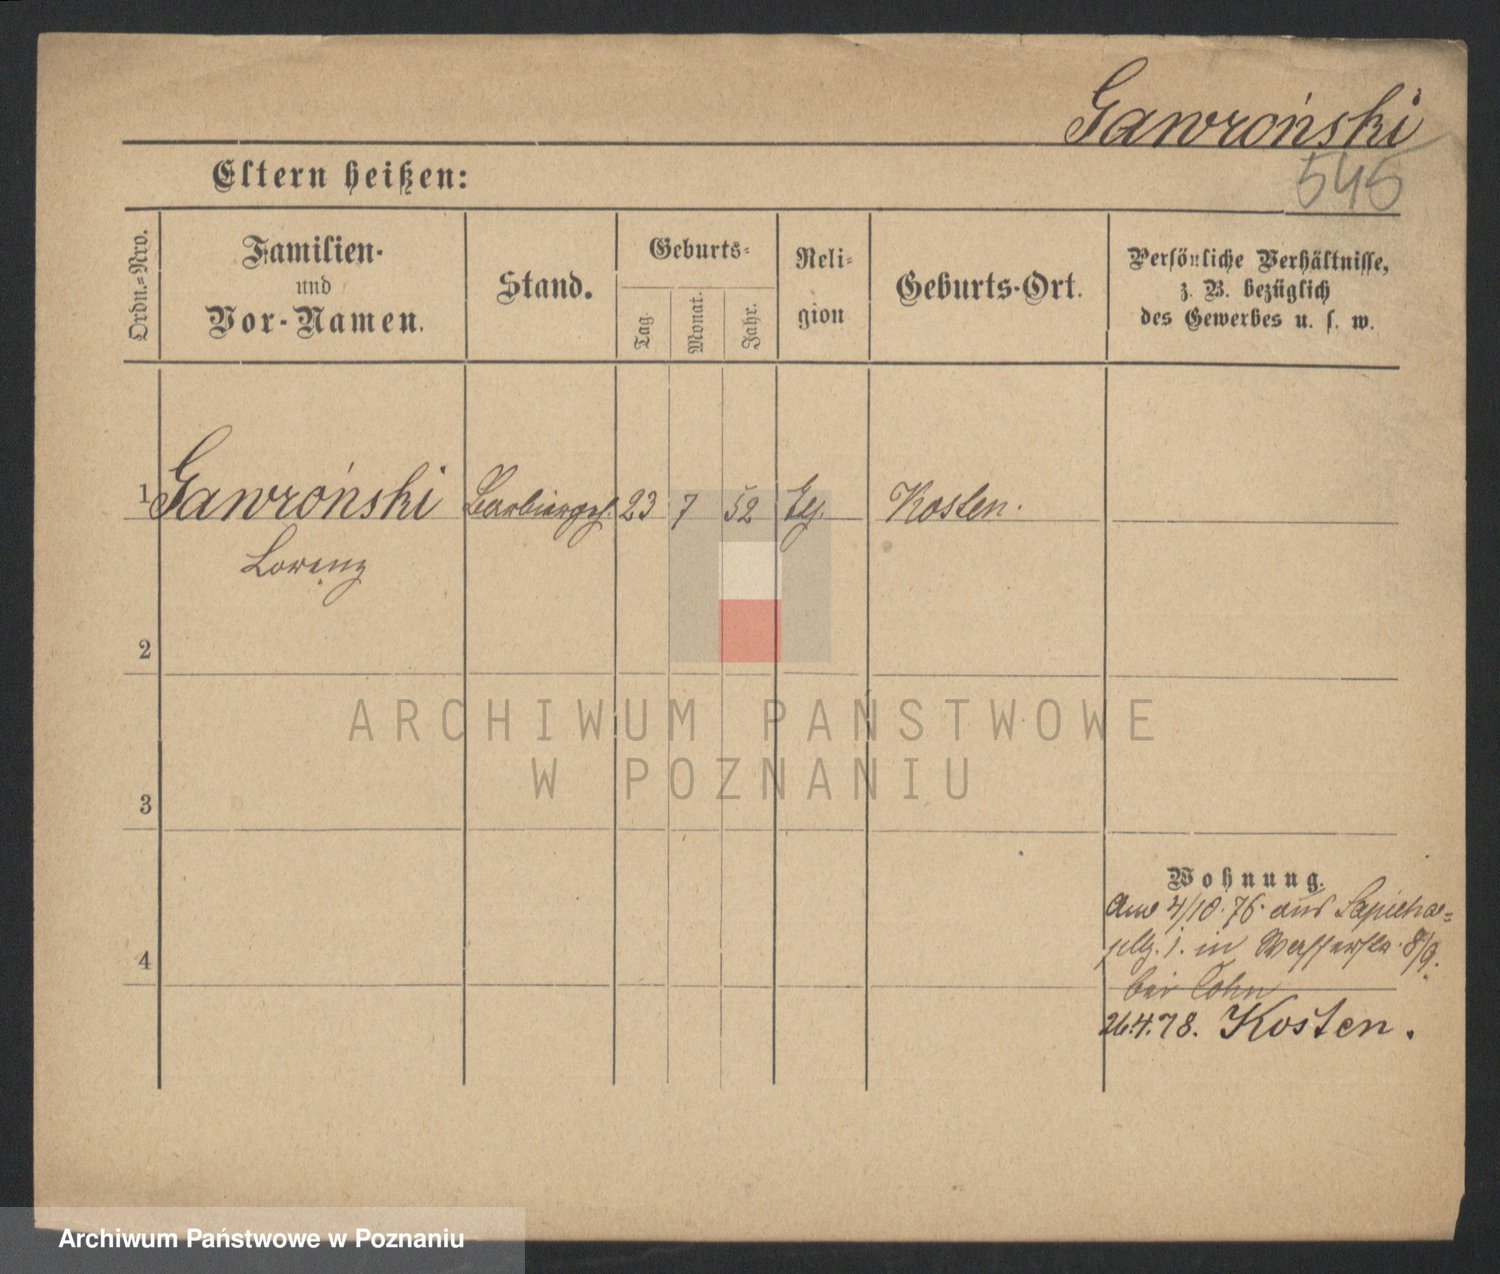 Gawroński
545
Eltern heißen:
Ordn.-Nro.
Familien-
und
Vor-Namen.
Stand.
Geburts-
Tag.
Monat.
Jahr.
Reli-
gion
Geburts-Ort.
Persönliche Verhältnisse,
z. B. bezüglich
des Gewerbes u. s. w.
1 Gawroński Barbiergeh. 23 7 52 Kosten.
Lorenz
2
3
4
ARCHIWUM PAŃSTWOWE
W POZNANIU
Wohnung.
4/10.76. aus Sapieha-
pltz. 1. in Wasserstr. 8/9.
bei Cohn
26.4.78. Kosten.
Archiwum Państwowe w Poznaniu